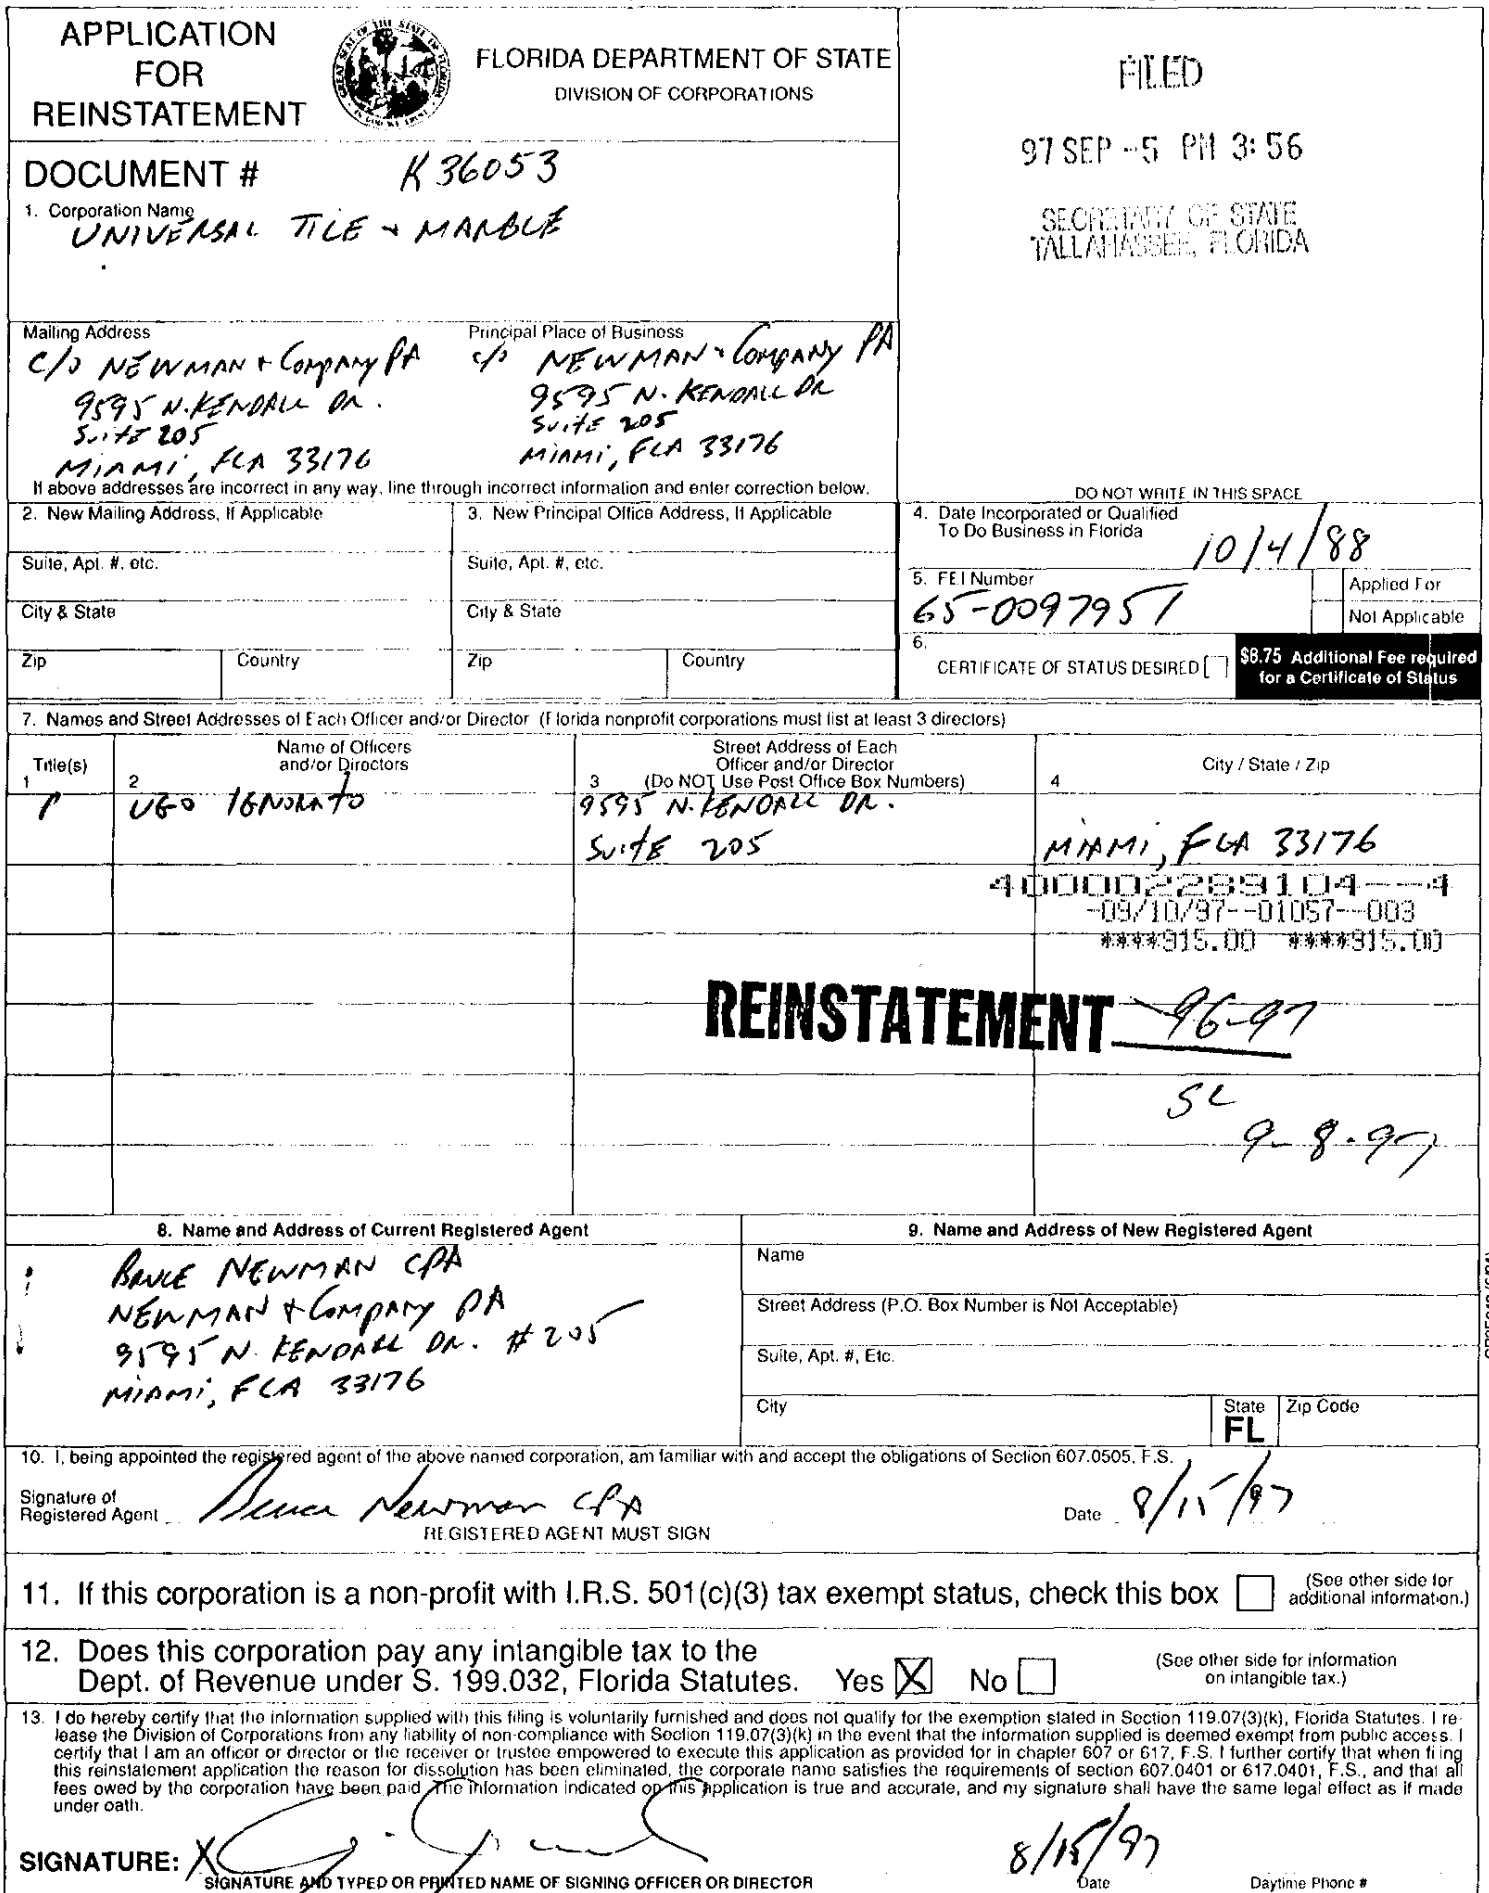 APPLICATION
FOR
REINSTATEMENT
FLORIDA DEPARTMENT OF STATE
DIVISION OF CORPORATIONS
FILED
97 SEP -5 PM 3:56
SECRETARY OF STATE
TALLAHASSEE, FLORIDA
DOCUMENT # K36053
1. Corporation Name
UNIVERSAL TILE + MARBLE
Mailing Address
C/O NEWMAN + COMPANY PA
9595 N. KENDALL DR.
SUITE 205
MIAMI, FLA 33176
Principal Place of Business
C/O NEWMAN + COMPANY PA
9595 N. KENDALL DR
SUITE 205
MIAMI, FLA 33176
If above addresses are incorrect in any way, line through incorrect information and enter correction below.
DO NOT WRITE IN THIS SPACE
2. New Mailing Address, If Applicable
3. New Principal Office Address, If Applicable
4. Date Incorporated or Qualified
To Do Business in Florida
10/4/88
Suite, Apt. #, etc.
Suite, Apt. #, etc.
5. FEI Number
65-0097951
Applied For
Not Applicable
City & State
City & State
6.
CERTIFICATE OF STATUS DESIRED
$8.75 Additional Fee required
for a Certificate of Status
Zip Country
Zip Country
7. Names and Street Addresses of Each Officer and/or Director (Florida nonprofit corporations must list at least 3 directors)
Title(s)
1
Name of Officers
and/or Directors
2
Street Address of Each
Officer and/or Director
3 (Do NOT Use Post Office Box Numbers)
City / State / Zip
4
P UGO IGNORATO 9595 N. KENDALL DR.
SUITE 205 MIAMI, FLA 33176
400002289104--4
-09/10/97--01057--003
****915.00 ****915.00
REINSTATEMENT 96-97
SL
9-8-97
8. Name and Address of Current Registered Agent
BRUCE NEWMAN CPA
NEWMAN + COMPANY PA
9595 N. KENDALL DR. #205
MIAMI, FLA 33176
9. Name and Address of New Registered Agent
Name
Street Address (P.O. Box Number is Not Acceptable)
Suite, Apt. #, Etc.
City State Zip Code
FL
10. I, being appointed the registered agent of the above named corporation, am familiar with and accept the obligations of Section 607.0505, F.S.
Signature of
Registered Agent Bruce Newman CPA Date 8/15/97
REGISTERED AGENT MUST SIGN
11. If this corporation is a non-profit with I.R.S. 501(c)(3) tax exempt status, check this box
(See other side for
additional information.)
12. Does this corporation pay any intangible tax to the
Dept. of Revenue under S. 199.032, Florida Statutes. Yes X No
(See other side for information
on intangible tax.)
13. I do hereby certify that the information supplied with this filing is voluntarily furnished and does not qualify for the exemption stated in Section 119.07(3)(k), Florida Statutes. I re-
lease the Division of Corporations from any liability of non-compliance with Section 119.07(3)(k) in the event that the information supplied is deemed exempt from public access. I
certify that I am an officer or director or the receiver or trustee empowered to execute this application as provided for in chapter 607 or 617, F.S. I further certify that when filing
this reinstatement application the reason for dissolution has been eliminated, the corporate name satisfies the requirements of section 607.0401 or 617.0401, F.S., and that all
fees owed by the corporation have been paid. The information indicated on this application is true and accurate, and my signature shall have the same legal effect as if made
under oath.
SIGNATURE: X
8/15/97
SIGNATURE AND TYPED OR PRINTED NAME OF SIGNING OFFICER OR DIRECTOR
Date
Daytime Phone #